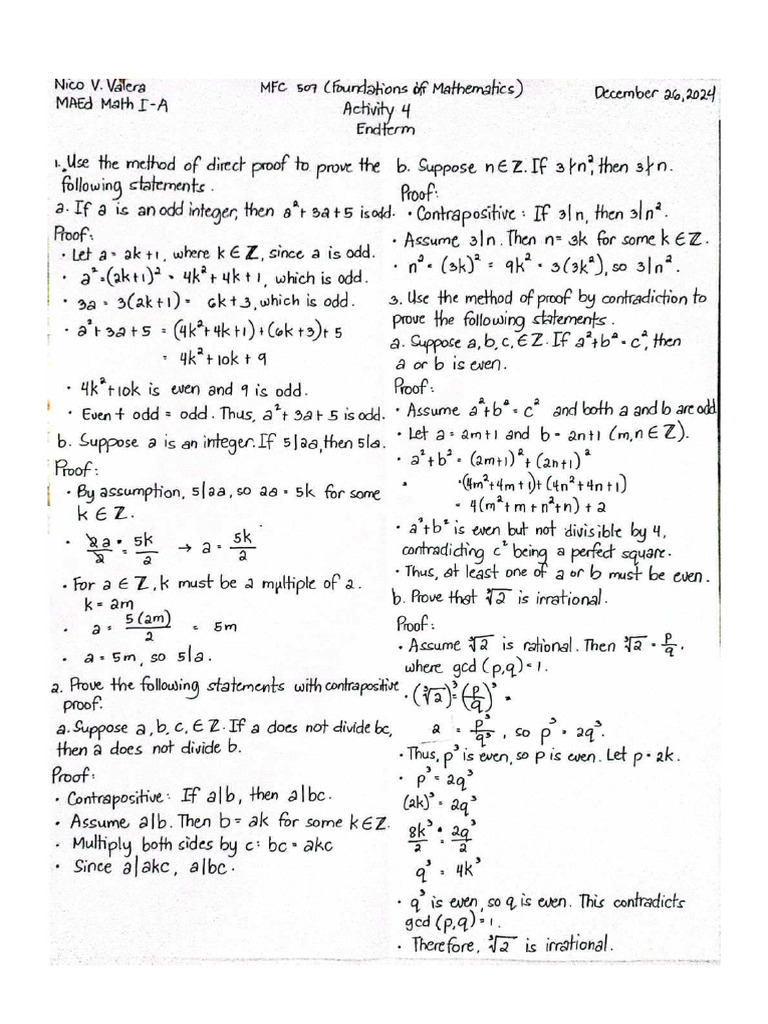 Nico V. Valera
MAEd Math I-A
MFC 507 (Foundations of Mathematics)
Activity 4
Endterm
December 26, 2024
1. Use the method of direct proof to prove the
following statements.
a. If a is an odd integer, then a² + 3a + 5 is odd.
Proof:
• Let a = 2k+1, where k ∈ ℤ, since a is odd.
• a² = (2k+1)² = 4k² + 4k + 1, which is odd.
• 3a = 3(2k+1) = 6k + 3, which is odd.
• a² + 3a + 5 = (4k² + 4k + 1) + (6k + 3) + 5
= 4k² + 10k + 9
• 4k² + 10k is even and 9 is odd.
• Even + odd = odd. Thus, a² + 3a + 5 is odd.
b. Suppose a is an integer. If 5|2a, then 5|a.
Proof:
• By assumption, 5|2a, so 2a = 5k for some
k ∈ ℤ.
• 2a/2 = 5k/2 → a = 5k/2
• For a ∈ ℤ, k must be a multiple of 2.
k = 2m
• a = 5(2m)/2 = 5m
• a = 5m, so 5|a.
2. Prove the following statements with contrapositive
proof.
a. Suppose a, b, c, ∈ ℤ. If a does not divide bc,
then a does not divide b.
Proof:
• Contrapositive: If a|b, then a|bc.
• Assume a|b. Then b = ak for some k ∈ ℤ.
• Multiply both sides by c: bc = akc
• Since a|akc, a|bc.
b. Suppose n ∈ ℤ. If 3∤n², then 3∤n.
Proof:
• Contrapositive: If 3|n, then 3|n².
• Assume 3|n. Then n = 3k for some k ∈ ℤ.
• n² = (3k)² = 9k² = 3(3k²), so 3|n².
3. Use the method of proof by contradiction to
prove the following statements.
a. Suppose a, b, c, ∈ ℤ. If a² + b² = c², then
a or b is even.
Proof:
• Assume a² + b² = c² and both a and b are odd
• Let a = 2m+1 and b = 2n+1 (m, n ∈ ℤ).
• a² + b² = (2m+1)² + (2n+1)²
• = (4m² + 4m + 1) + (4n² + 4n + 1)
= 4(m² + m + n² + n) + 2
• a² + b² is even but not divisible by 4,
contradicting c² being a perfect square.
• Thus, at least one of a or b must be even.
b. Prove that ∛2 is irrational.
Proof:
• Assume ∛2 is rational. Then ∛2 = p/q,
where gcd (p,q) = 1.
• (∛2)³ = (p/q)³ =
2 = p³/q³, so p³ = 2q³.
• Thus, p³ is even, so p is even. Let p = 2k.
• p³ = 2q³
(2k)³ = 2q³
8k³/2 = 2q³/2
q³ = 4k³
• q³ is even, so q is even. This contradicts
gcd (p,q) = 1.
• Therefore, ∛2 is irrational.